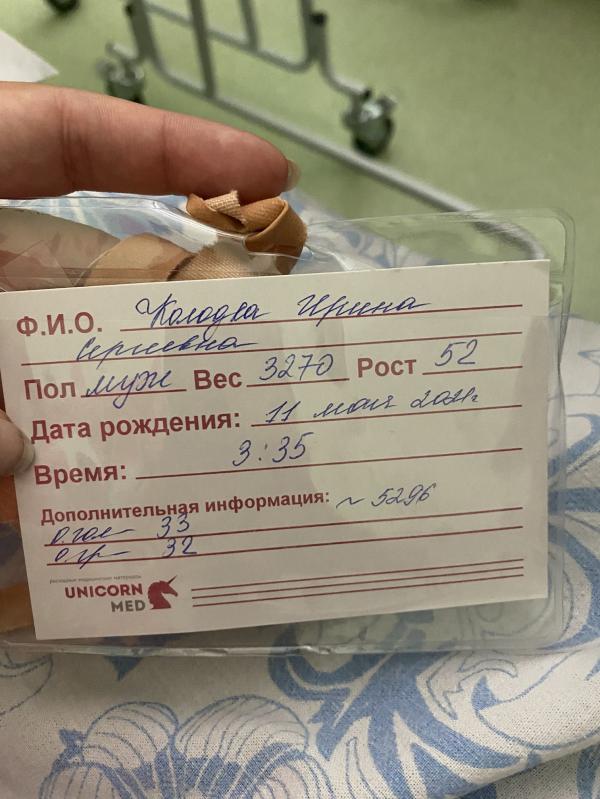 Ф.И.О. Колодка Ирина
Сергеевна
Пол муж Вес 3270 Рост 52
Дата рождения: 11 мая
Время: 3:35
Дополнительная информация: ~ 5296
о.гол— 33
о.гр— 32
расходные медицинские материалы
UNICORN
MED